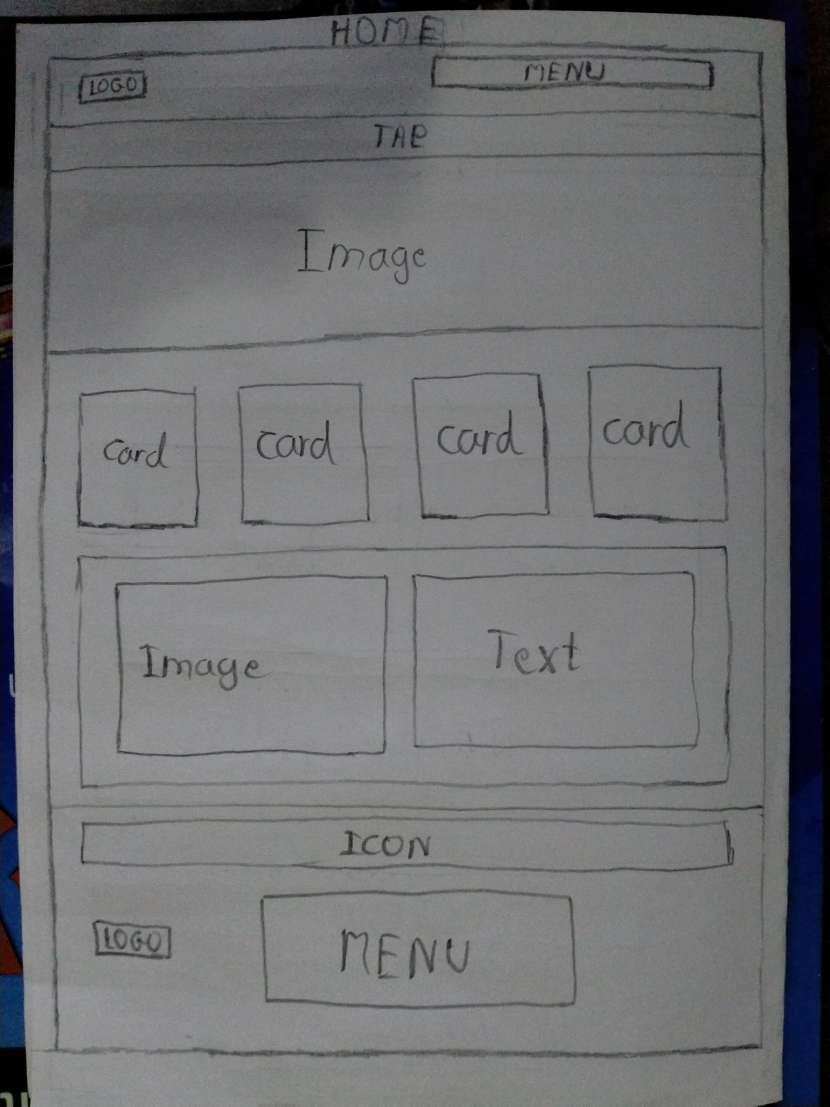 HOME
LOGO MENU
TAP
Image
card card card card
Image Text
ICON
LOGO MENU